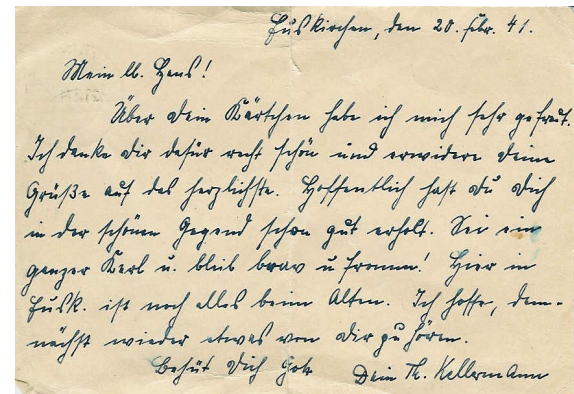 Euskirchen, den 20. Febr. 41.
Mein lb. Hans!
Über Dein Kärtchen habe ich mich sehr gefreut.
Ich danke Dir dafür recht schön und erwidere Deine
Grüße auf das herzlichste. Hoffentlich hast Du Dich
in der schönen Gegend schon gut erholt. Sei ein
ganzer Kerl u. bleib brav u fromm! Hier in
Eusk. ist noch alles beim Alten. Ich hoffe, dem-
nächst wieder etwas von Dir zu hören.
Behüt Dich Gott
Dein Th. Kellermann